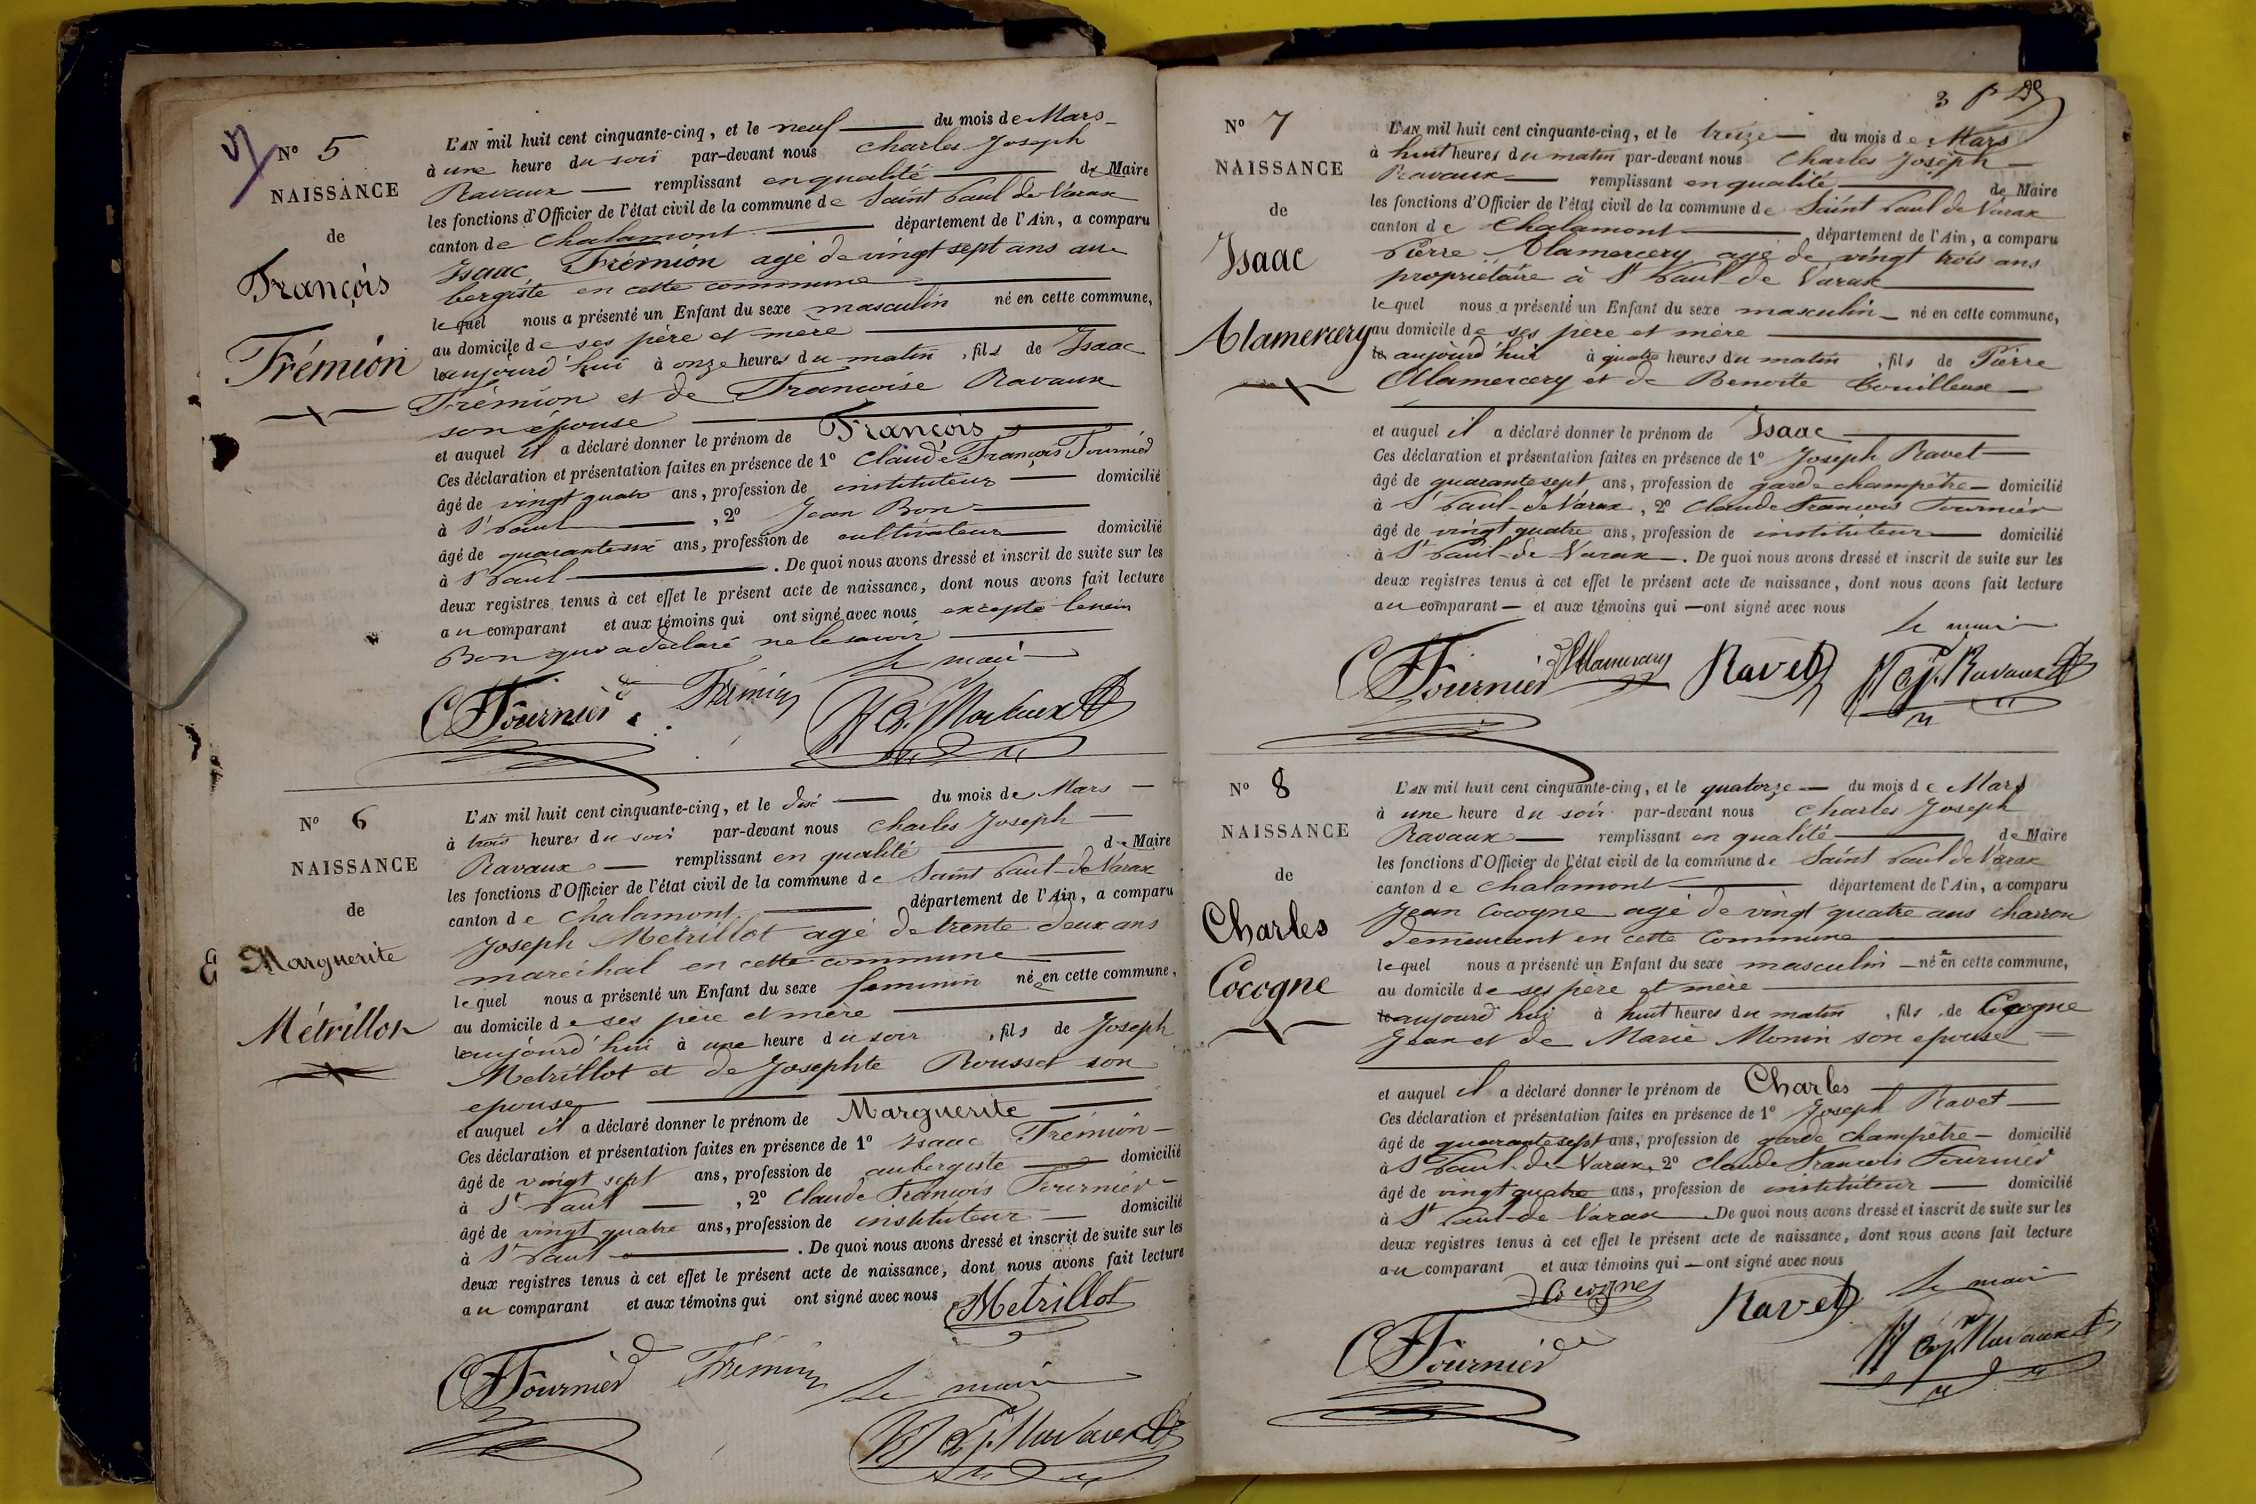 Nº 5
NAISSANCE
de
François
Frémion
L'AN mil huit cent cinquante-cinq, et le neuf du mois de Mars
à une heure du soir par-devant nous Charles Joseph
Ravaux remplissant en qualité de Maire
les fonctions d'Officier de l'état civil de la commune de Saint Paul de Varax
canton de Chalamont département de l'Ain, a comparu
Isaac Frémion agé de vingt sept ans au
bergiste en cette commune
lequel nous a présenté un Enfant du sexe masculin né en cette commune,
au domicile de ses père et mère
le aujourd'hui à onze heures du matin, fils de Isaac
Frémion et de Francoise Ravaux
son épouse
et auquel il a déclaré donner le prénom de François
Ces déclaration et présentation faites en présence de 1º Claude François Fournier
âgé de vingt quatre ans, profession de instituteur domicilié
à St Paul, 2º Jean Bon
âgé de quarante six ans, profession de cultivateur domicilié
à St Paul. De quoi nous avons dressé et inscrit de suite sur les
deux registres tenus à cet effet le présent acte de naissance, dont nous avons fait lecture
au comparant et aux témoins qui ont signé avec nous excepté
Bon qui a déclaré ne le savoir
Le maire
Fournier Frémion Ravaux
Nº 6
NAISSANCE
de
Marguerite
Métrillot
L'AN mil huit cent cinquante-cinq, et le dix du mois de Mars
à trois heures du soir par-devant nous Charles Joseph
Ravaux remplissant en qualité de Maire
les fonctions d'Officier de l'état civil de la commune de Saint Paul de Varax
canton de Chalamont département de l'Ain, a comparu
Joseph Metrillot agé de trente deux ans
maréchal en cette commune
lequel nous a présenté un Enfant du sexe feminin née en cette commune,
au domicile de ses père et mère
le aujourd'hui à une heure du soir, fils de Joseph
Metrillot et de Josephte Rousset son
epouse
et auquel il a déclaré donner le prénom de Marguerite
Ces déclaration et présentation faites en présence de 1º Isaac Frémion
âgé de vingt sept ans, profession de aubergiste domicilié
à St Paul, 2º Claude François Fournier
âgé de vingt quatre ans, profession de instituteur domicilié
à St Paul. De quoi nous avons dressé et inscrit de suite sur les
deux registres tenus à cet effet le présent acte de naissance, dont nous avons fait lecture
au comparant et aux témoins qui ont signé avec nous Metrillot
Fournier Frémion Le maire
Ravaux
3
Nº 7
NAISSANCE
de
Isaac
Alamercery
L'AN mil huit cent cinquante-cinq, et le treize du mois de Mars
à huit heures du matin par-devant nous Charles Joseph
Ravaux remplissant en qualité de Maire
les fonctions d'Officier de l'état civil de la commune de Saint Paul de Varax
canton de Chalamont département de l'Ain, a comparu
Pierre Alamercery agé de vingt trois ans
propriétaire à St Paul de Varax
lequel nous a présenté un Enfant du sexe masculin né en cette commune,
au domicile de ses père et mère
le aujourd'hui à quatre heures du matin, fils de Pierre
Alamercery et de Benoite
et auquel il a déclaré donner le prénom de Isaac
Ces déclaration et présentation faites en présence de 1º Joseph Ravet
âgé de quarante sept ans, profession de garde champêtre domicilié
à St Paul de Varax, 2º Claude François Fournier
âgé de vingt quatre ans, profession de instituteur domicilié
à St Paul de Varax. De quoi nous avons dressé et inscrit de suite sur les
deux registres tenus à cet effet le présent acte de naissance, dont nous avons fait lecture
au comparant et aux témoins qui ont signé avec nous
Le maire
Fournier Alamercery Ravet Ravaux
Nº 8
NAISSANCE
de
Charles
Cocogne
L'AN mil huit cent cinquante-cinq, et le quatorze du mois de Mars
à une heure du soir par-devant nous Charles Joseph
Ravaux remplissant en qualité de Maire
les fonctions d'Officier de l'état civil de la commune de Saint Paul de Varax
canton de Chalamont département de l'Ain, a comparu
Jean Cocogne agé de vingt quatre ans charron
demeurant en cette Commune
lequel nous a présenté un Enfant du sexe masculin né en cette commune,
au domicile de ses père et mère
le aujourd'hui à huit heures du matin, fils de Cocogne
Jean et de Marie Monin son epouse
et auquel il a déclaré donner le prénom de Charles
Ces déclaration et présentation faites en présence de 1º Joseph Ravet
âgé de quarante sept ans, profession de garde champêtre domicilié
à St Paul de Varax, 2º Claude François Fournier
âgé de vingt quatre ans, profession de instituteur domicilié
à St Paul de Varax. De quoi nous avons dressé et inscrit de suite sur les
deux registres tenus à cet effet le présent acte de naissance, dont nous avons fait lecture
au comparant et aux témoins qui ont signé avec nous
Cocogne Le maire
Fournier Ravet Ravaux